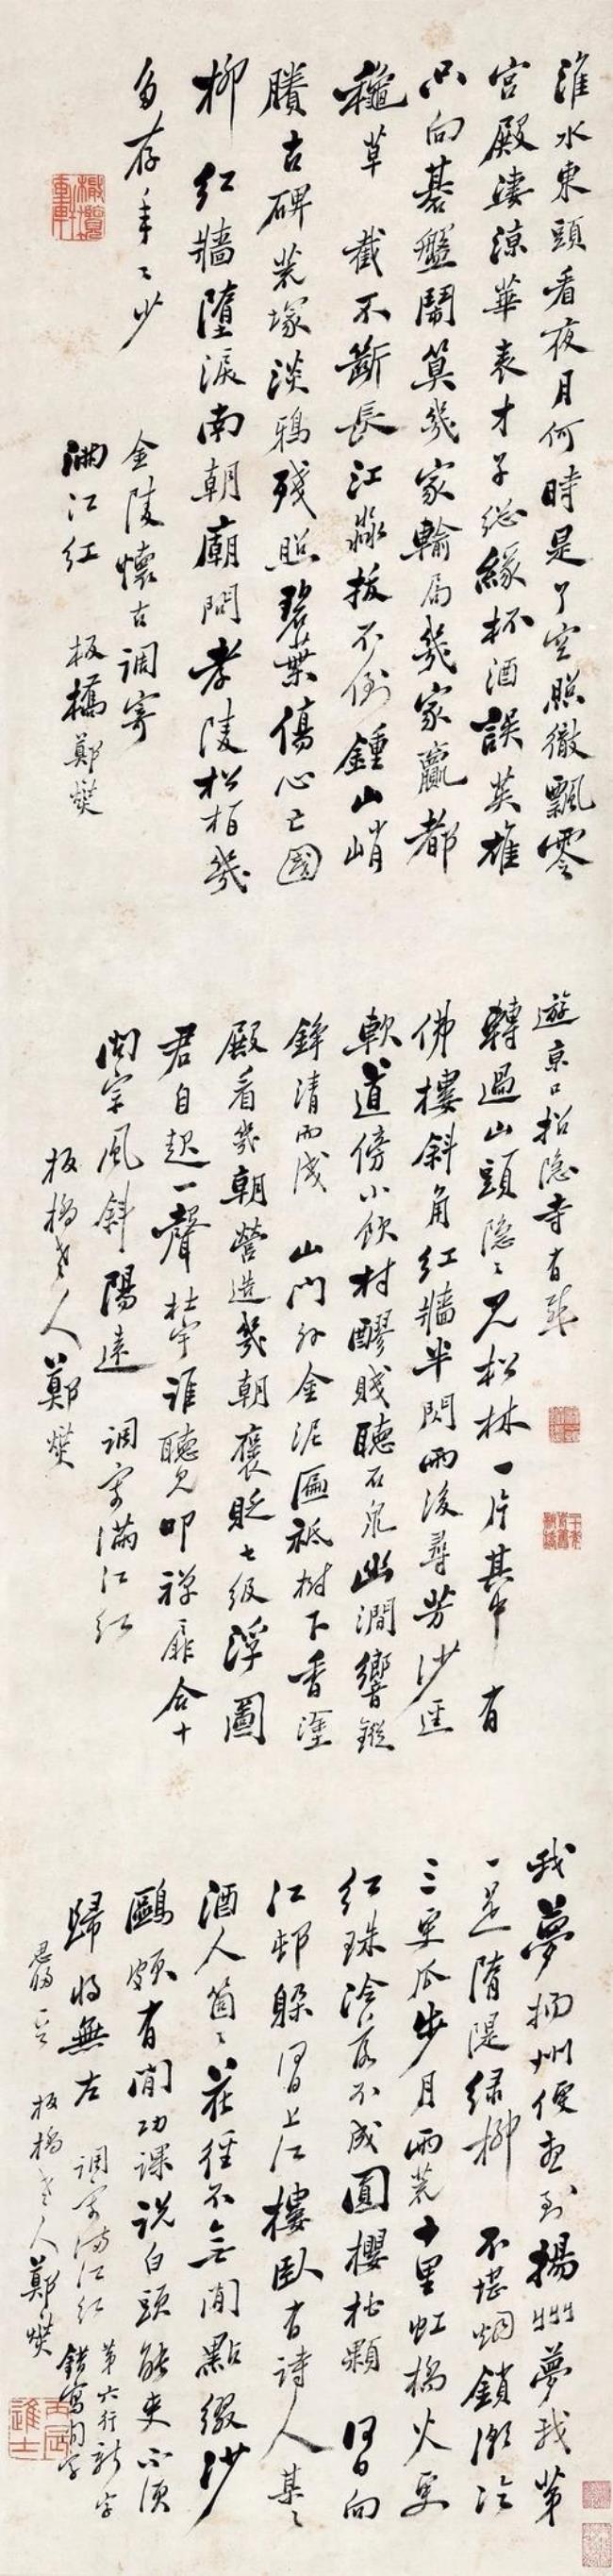 淮水東頭看夜月何時是了空照徹飄零
宮殿淒涼華表才子總緣杯酒誤英雄
只向碁盤鬧算幾家輸局幾家贏都
穐草　截不斷長江淼拔不倒鍾山峭
賸古碑荒塚淡鴉殘照碧葉傷心亡國
柳　紅牆墮淚南朝廟問孝陵松柏幾
多存年々少
金陵懷古調寄
滿江紅　板橋鄭燮
遊京口招隱寺有感
轉過山頭隱々見松林一片其中有
佛樓斜角紅牆半閃雨後尋芳沙逕
軟道傍小飲村醪賤聽石泉幽澗響鏦
錚清而淺　山門外金泥匾祇樹下香塗
殿看幾朝營造幾朝褒貶七級浮圖
君自起一聲杜宇誰聽見叩禪扉合十
問宗風斜陽遠　調寄滿江紅
板橋老人鄭燮
我夢揚州便想到揚州夢我第
一是隋隄綠柳　不堪烟鎖潮打
三更瓜步月雨荒十里虹橋火更
紅珠冷落不成圓櫻桃顆　何日向
江邨躲何日上江樓臥有詩人某々
酒人箇々花徑不無閒點綴沙
鷗頗有閒功課說白頭能吏不須
歸將無左　調寄滿江紅
板橋老人鄭燮
第六行
錯寫